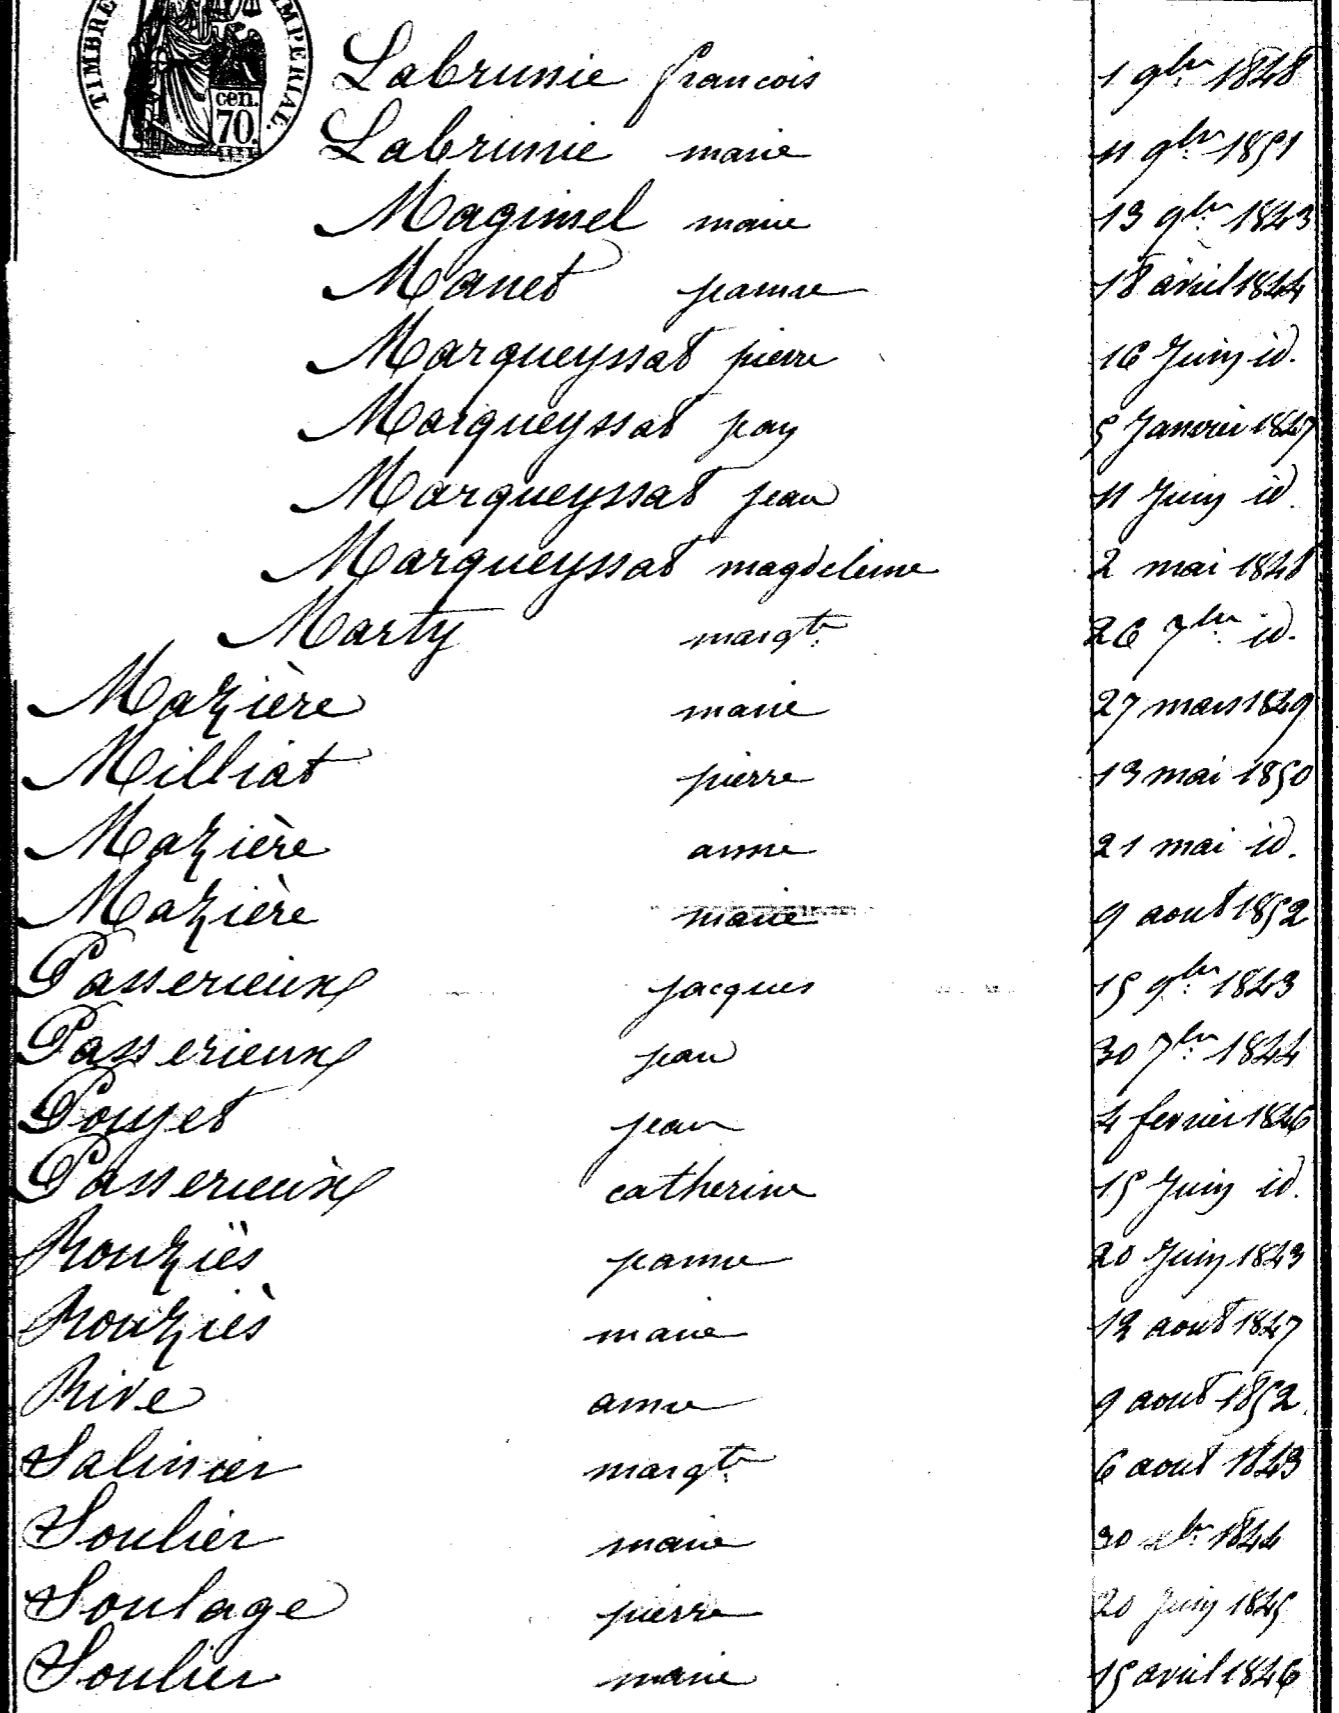 TIMBRE IMPERIAL.
cen.
70.
Labrunie francois 1 9bre 1848
Labrunie marie 11 9bre 1851
Maginsel marie 13 9bre 1843
Manet jeanne 18 avril 1844
Marqueyssat pierre 16 Juin id.
Marqueyssat jean 5 Janvier 1847
Marqueyssat jean 11 Juin id.
Marqueyssat magdeleine 2 mai 1848
Marty margte 26 7bre id.
Mazière marie 27 mars 1849
Milliat pierre 13 mai 1850
Mazière anne 21 mai id.
Mazière marie 9 aout 1852
Passerieux jacques 15 9bre 1843
Passerieux jean 30 7bre 1844
Pouget jean 4 fevrier 1846
Passerieux catherine 15 Juin id.
Rouziès jeanne 20 Juin 1843
Rouziès marie 12 aout 1847
Rive anne 9 aout 1852
Salinier margte 6 aout 1843
Soulier marie 30 1844
Soulage pierre 20 Juin 1845
Soulier marie 15 avril 1846